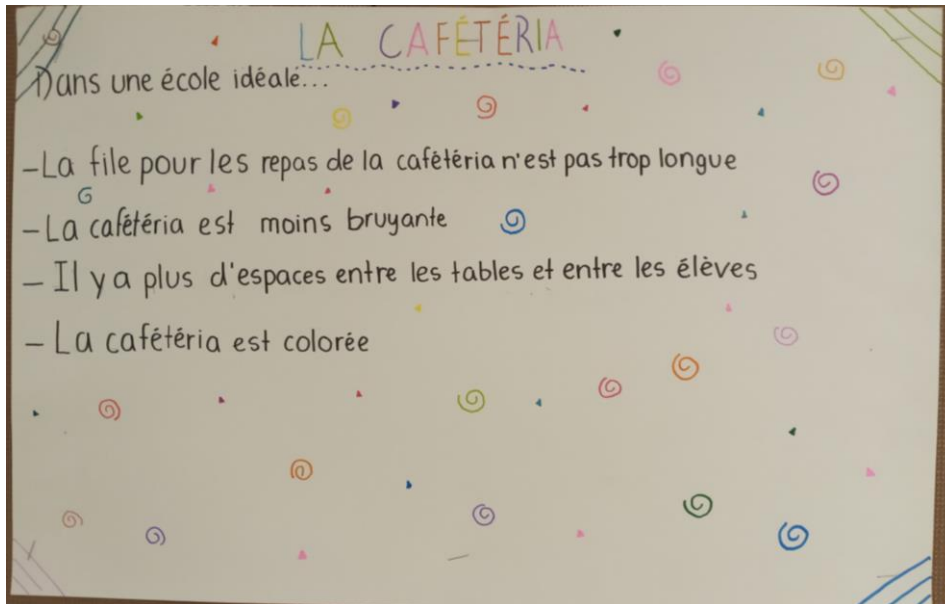 LA CAFÉTÉRIA
Dans une école idéale...
-La file pour les repas de la cafétéria n'est pas trop longue
-La cafétéria est moins bruyante
- Il y a plus d'espaces entre les tables et entre les élèves
- La cafétéria est colorée